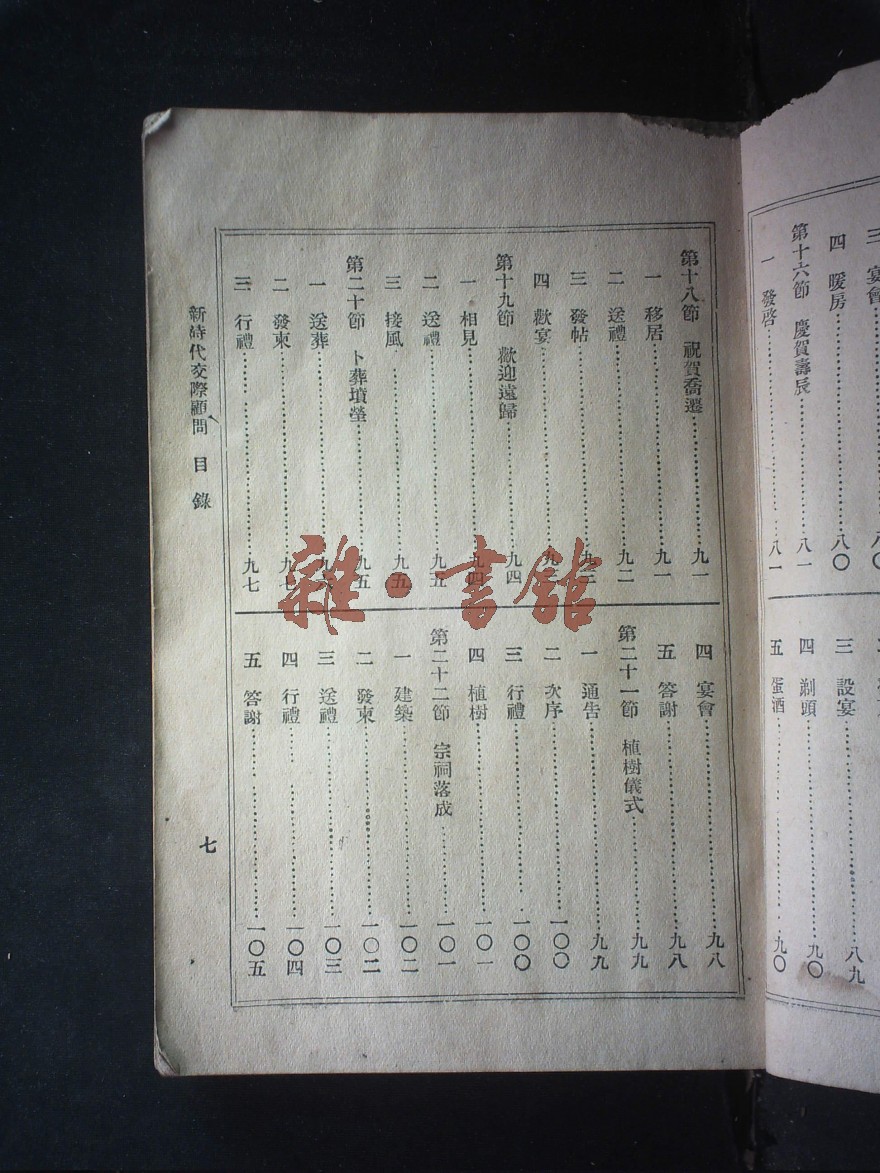 三 宴會……八〇
四 暖房……八〇
第十六節 慶賀壽辰……八一
一 發啓……八一
三 設宴……八九
四 剃頭……九〇
五 蛋酒……九〇
第十八節 祝賀喬遷……九一
一 移居……九一
二 送禮……九二
三 發帖
四 歡宴
第十九節 歡迎遠歸……九四
一 相見……九四
二 送禮……九五
三 接風……九五
第二十節 卜葬墳塋……九五
一 送葬
二 發柬……九七
三 行禮……九七
四 宴會……九八
五 答謝……九八
第二十一節 植樹儀式……九九
一 通告……九九
二 次序……一〇〇
三 行禮……一〇〇
四 植樹……一〇一
第二十二節 宗祠落成……一〇一
一 建築……一〇二
二 發柬……一〇二
三 送禮……一〇三
四 行禮……一〇四
五 答謝……一〇五
新時代交際顧問 目錄
七
雜·書館